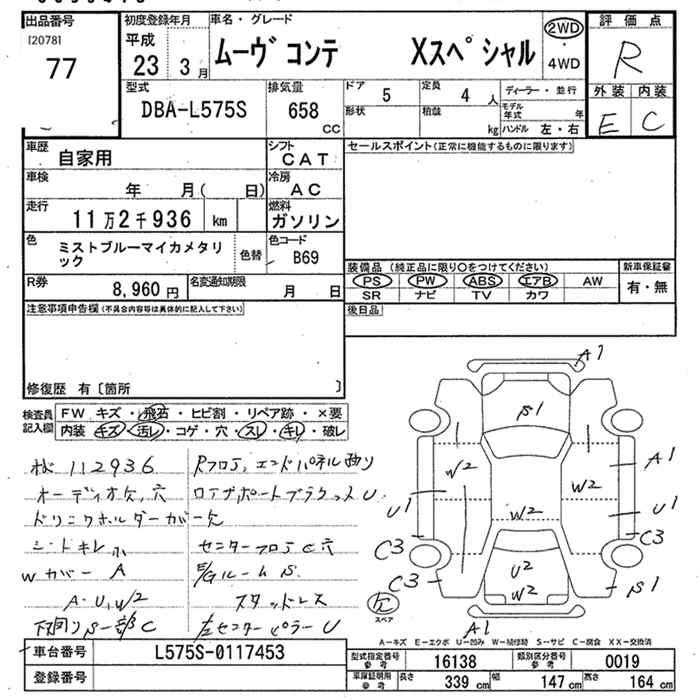 出品番号
[2078]
77
初度登録年月
平成
23 3月
車名・グレード
ムーヴ コンテ Xスペシャル
2WD
・
4WD
評価点
R
外装 内装
E C
型式
DBA-L575S
排気量
658
CC
ドア
5
定員
4 人
形状
積載
kg
ディーラー・並行
モデル年式 年
ハンドル 左・右
車歴
自家用
シフト
CAT
車検
年 月( 日)
冷房
AC
走行
11万2千936 km
燃料
ガソリン
色
ミストブルーマイカメタリ
ック
色替
色コード
B69
R券
8,960 円
名変通知期限
月 日
セールスポイント(正常に機能するものに限ります)
装備品 (純正品に限り〇をつけてください)
PS PW ABS エアB AW
SR ナビ TV カワ
新車保証書
有・無
後日品
注意事項申告欄(不具合内容等は具体的に記入して下さい)
修復歴 有〔箇所 〕
検査員
記入欄
FW キズ・飛石・ヒビ割・リペア跡・×要
内装 キズ・汚レ・コゲ・穴・スレ・キレ・破レ
112936
オーディオ欠,穴
ドリンクホルダーカバー欠
シートキレ 小
Wカバー A
A・U,W2
下回りS一部C
Rフロア,エンドパネル曲り
ロアサポートブラケットU
センターフロアC穴
E/GルームS
スタッドレス
左センターピラーU
A1
S1
W2
W2
A1
U1
W2
U1
C3
C3
U2
C3
W2
S1
A1
欠
スペア
A-キズ E-エクボ U-凹み W-補修跡 S-サビ C-腐食 XX-交換済
車台番号
L575S-0117453
登録番号
型式指定番号
参考
16138
類別区分番号
参考
0019
車庫証明用
参考
長さ 339 cm
幅 147 cm
高さ 164 cm